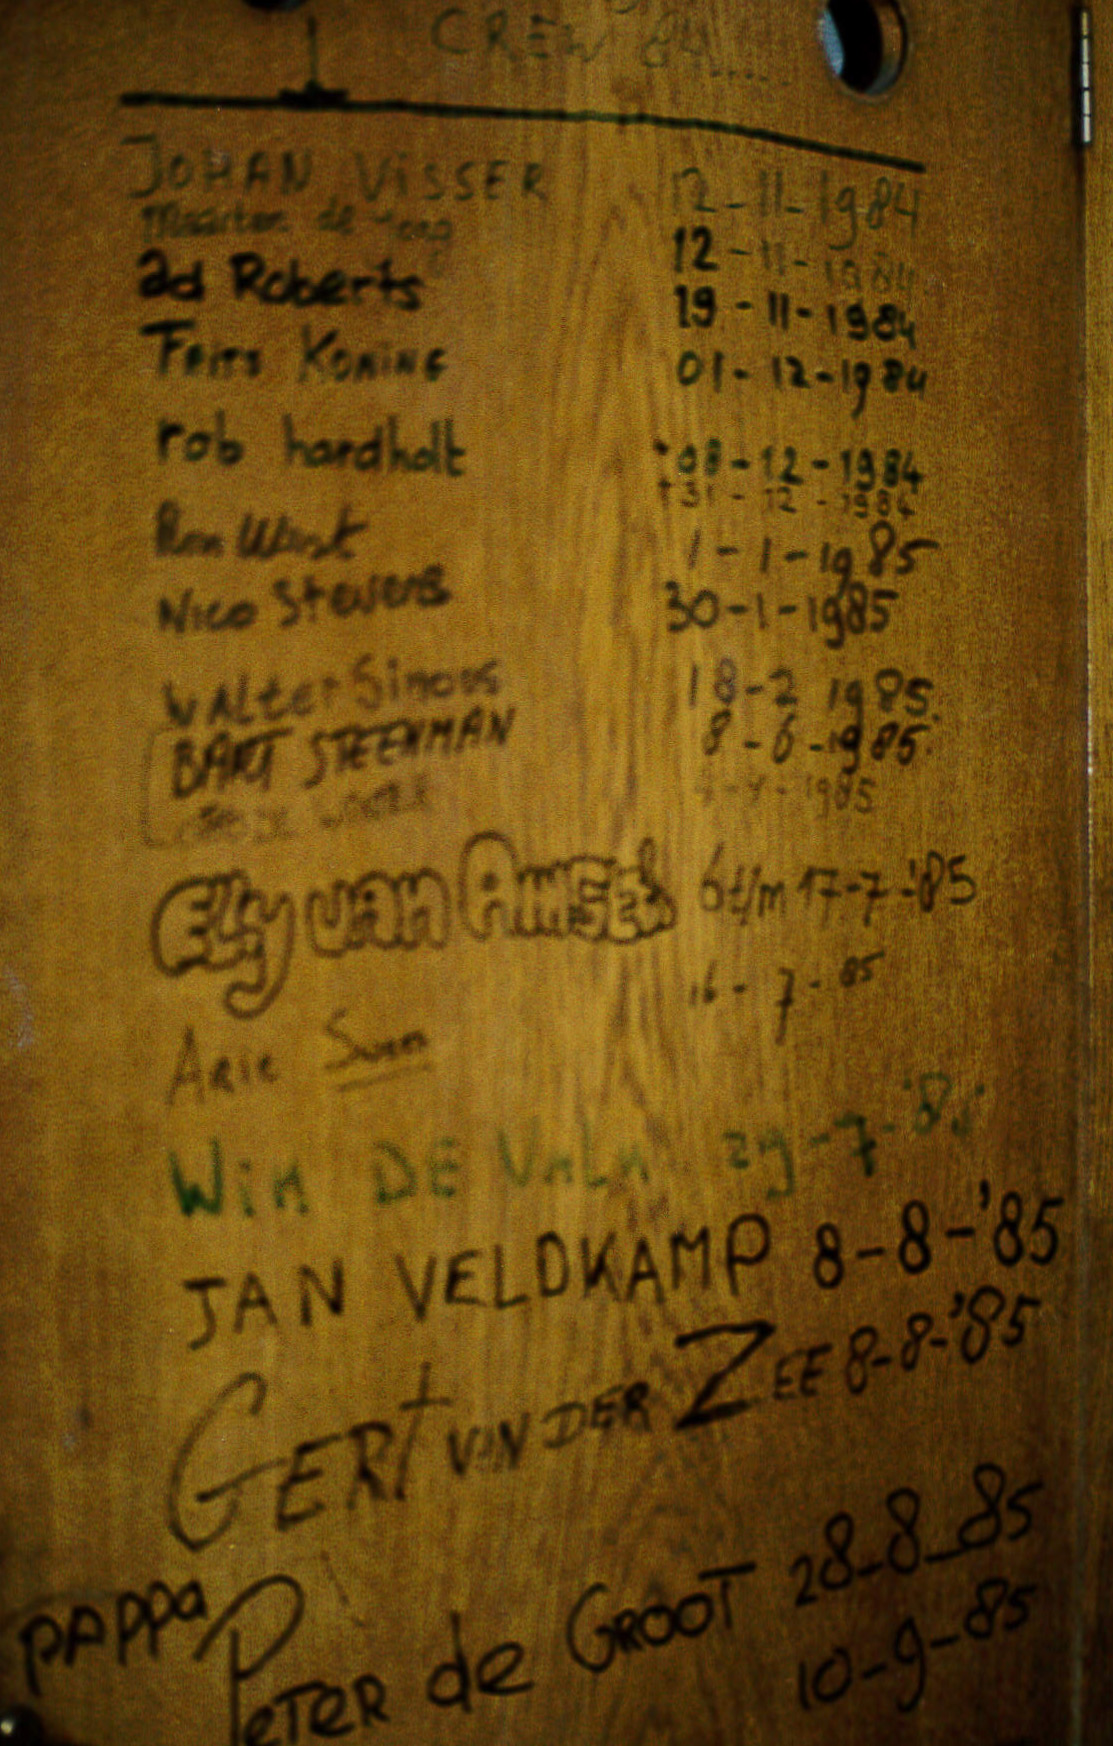 CREW 84....
JOHAN VISSER 12-11-1984
Maarten de 12-11-1984
ad Roberts 19-11-1984
FRITS KONING 01-12-1984
rob hardholt +08-12-1984
+31-12-1984
1-1-1985
Nico Stevens 30-1-1985
WALter Simons 18-2 1985
BART STEENMAN 8-6-1985
1985
Elly van Amsel 6 t/m 17-7-'85
ARIE 16-7-85
WIM DE 29-7-'85
JAN VELDKAMP 8-8-'85
GERT VAN DER ZEE 8-8-'85
PAPPA PETER de GROOT 28-8-85
10-9-85